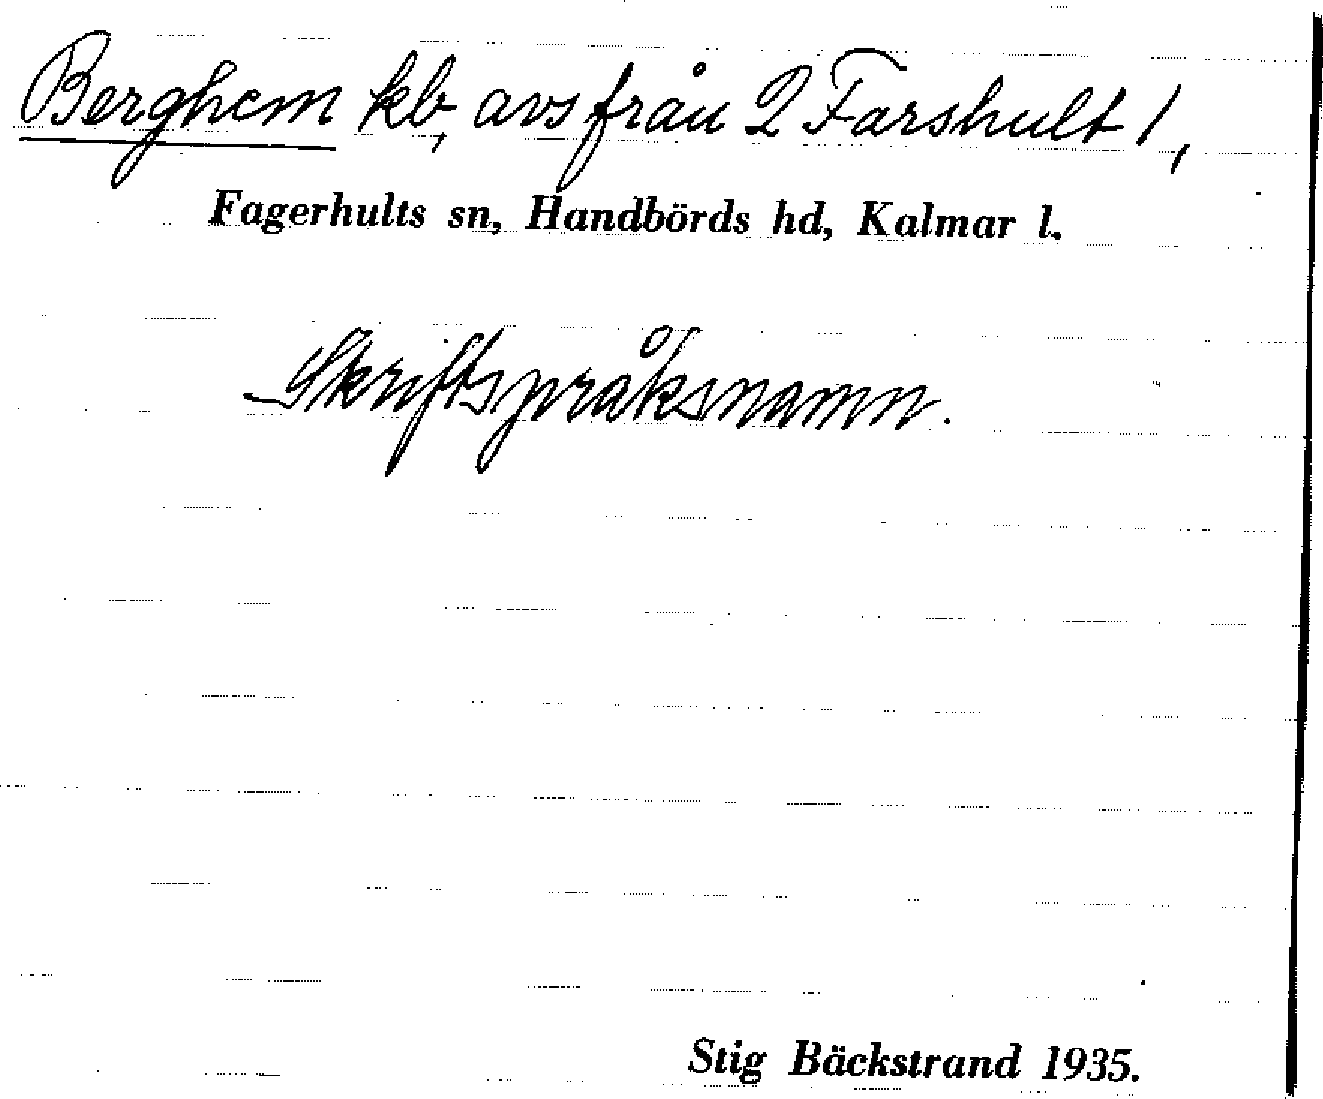 Berghem kb, avs från 2 Farshult 1,
Fagerhults sn, Handbörds hd, Kalmar l.
Skriftspråksnamn.
Stig Bäckstrand 1935.